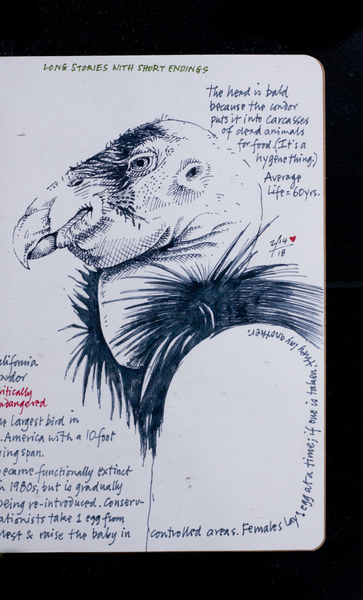 LONG STORIES WITH SHORT ENDINGS
The head is bald
because the condor
puts it into carcasses
of dead animals
for food. (It's a
hygene thing.)
Average
Life = 60yrs.
2/14
18
alifornia
ondor
ritically
ndangered
largest bird in
. America with a 10 foot
ingspan.
ecame functionally extinct
in 1980s, but is gradually
being re-introduced. Conserv-
ationists take 1 egg from
nest & raise the baby in controlled areas. Females lay 1 egg at a time; if one is taken, they lay another.